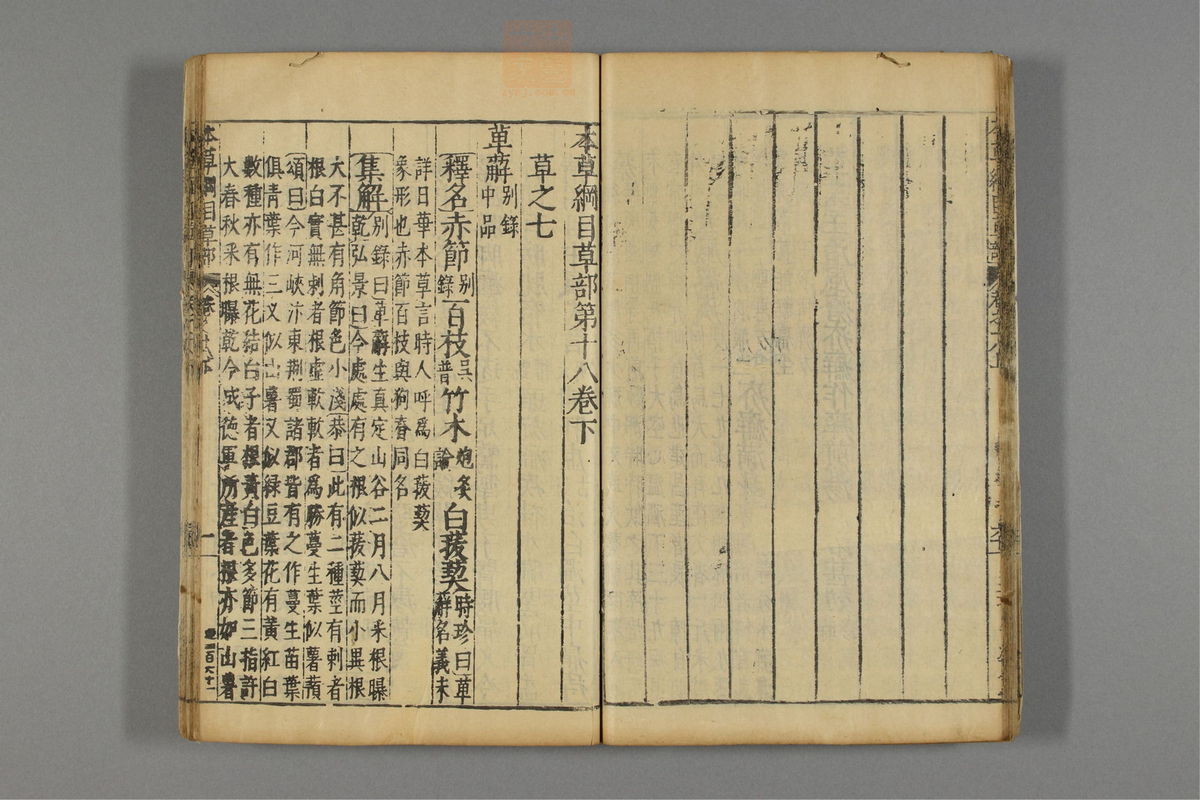 本草綱目草部第十八卷下
草之七
萆薢別錄中品
釋名赤節別錄百枝吳普竹木炮炙論白菝葜時珍曰萆薢名義未
詳日華本草言時人呼爲白菝葜
象形也赤節百枝與狗脊同名
集解別錄曰萆薢生真定山谷二月八月采根曝
乾弘景曰今處處有之根似菝葜而小異根
大不甚有角節色小淺恭曰此有二種莖有刺者
根白實無刺者根虛軟軟者爲勝蔓生葉似薯蕷
頌曰今河峽汴東荆蜀諸郡皆有之作蔓生苗葉
俱青葉作三叉似山薯又似綠豆葉花有黃紅白
數種亦有無花結白子者根黃白色多節三指許
大春秋采根曝乾今成德軍所產者根亦如山薯
本草綱目草部
一